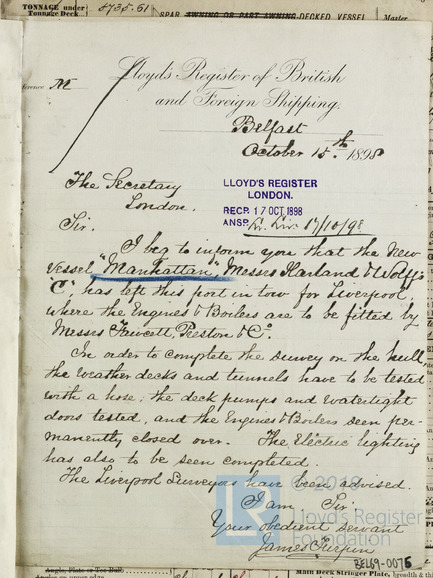 TONNAGE under
Tonnage Deck
5735.61
SPAR AWNING OR PART AWNING-DECKED VESSEL
Master
Lloyd's Register of British
and Foreign Shipping.
Belfast
October 15th 1898
The Secretary
London.
LLOYD'S REGISTER
LONDON.
RECD. 17 OCT 1898
ANSD. 17/10/98
Sir.
I beg to inform you that the New
vessel "Manhattan", Messrs Harland & Wolff's
"C", has left this port in tow for Liverpool
where the Engines & Boilers are to be fitted by
Messrs Fawcett, Preston & Co.
In order to complete the survey on the hull,
the weather decks and tunnels have to be tested
with a hose; the deck pumps and watertight
doors tested, and the Engines & Boilers seen per-
manently closed over. The Electric lighting
has also to be seen completed.
The Liverpool Surveyors have been advised.
I am Sir
Your obedient servant
James Turpin
LR
Lloyd's Register
Foundation
BEL69-0076
Main Deck Stringer Plate, breadth &